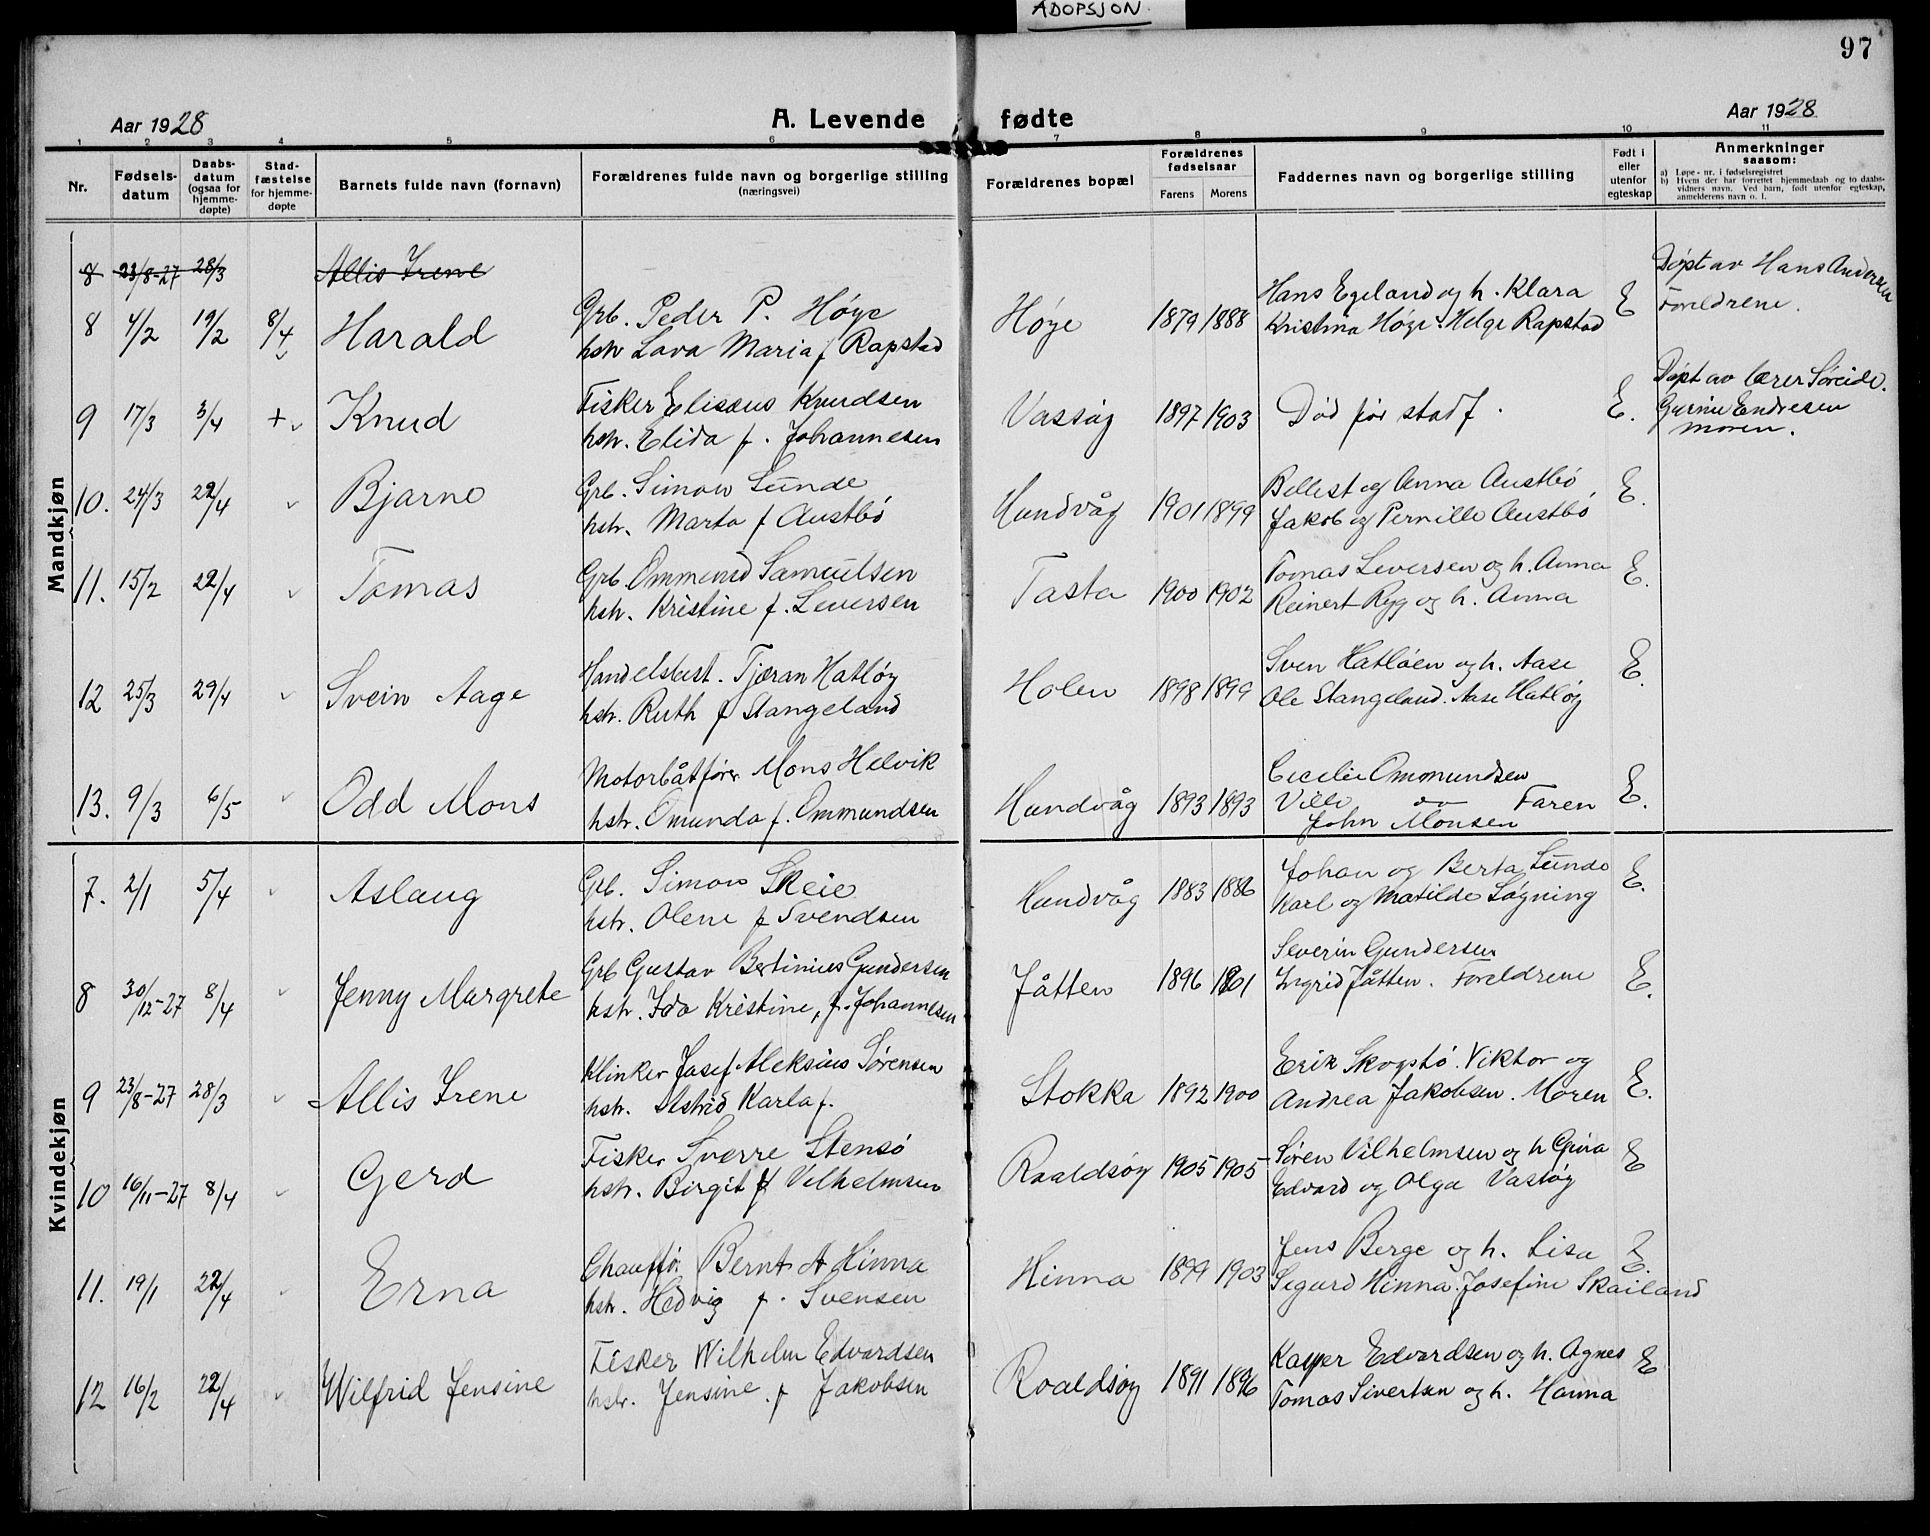 ADOPSJON.
97
Aar 1928 A. Levende fødte Aar 1928
1 2 3 4 5 6 7 8 9 10 11
Nr. Fødsels-datum Daabs-datum (ogsaa for hjemme-døpte) Stad-fæstelse for hjemme-døpte Barnets fulde navn (fornavn) Forældrenes fulde navn og borgerlige stilling (næringsvei) Forældrenes bopæl Forældrenes fødselsaar Farens Morens Faddernes navn og borgerlige stilling Født i eller utenfor egteskap Anmerkninger saasom:
a) Løpe-nr. i fødselsregistret
b) Hvem der har forrettet hjemmedaab og to daabs-vidners navn. Ved barn, født utenfor egteskap, anmelderens navn o. l.
Mandkjøn
8 23/8-27 28/3 Allis Irene
8 4/2 19/2 8/4 Harald Grb. Peder P. Høye Høye 1879 1888 Hans Egeland og h. Klara E Døpt av Hans Andersen
hstr Lava Maria f Rapstad Kristina Høye. Helge Rapstad Foreldrene.
9 17/3 3/4 + Knud Fisker Elisæus Knudsen Vassøy 1897 1903 Død før stadf. E. Døpt av lærer Søreide.
hstr. Elida f. Johannesen Gurine Endresen
moren.
10. 24/3 22/4 Bjarne Grb. Simon Sunde Hundvåg 1901 1899 Bellest og Anna Austbø E.
hstr. Marta f Austbø Jakob og Pernille Austbø
11. 15/2 22/4 Tomas Grb. Ommund Samuelsen Tasta 1900 1902 Tomas Seversen og h. Anna E.
hstr. Kristine f. Seversen Reinert Ryg og h. Anna
12 25/3 29/4 Svein Aage Handelsbest. Tjæran Hatløy Holen 1898 1899 Sven Hatløen og h. Aase E.
hstr. Ruth f Stangeland Ole Stangeland. Aase Hatløy
13. 9/3 6/5 Odd Mons Motorbåtfører Mons Helvik Hundvåg 1893 1893 Cecilie Ommundsen E.
hstr. Omunda f. Ommundsen Ville do Faren
John Monsen
Kvindekjøn
7. 2/1 5/4 Aslaug Grb. Simon Skeie Hundvåg 1883 1886 Johan og Berta Sunde E.
hstr. Olene f Svendsen Karl og Matilde Løgning
8 30/12-27 8/4 Jenny Margrete Grb Gustav Bertinius Gundersen Jåtten 1896 1901 Severin Gundersen E.
hstr. Ida Kristine, f. Johannesen Ingrid Jåtten. Foreldrene
9 23/8-27 28/3 Allis Irene Klinker Josef Aleksius Sørensen Stokka 1892 1900 Erik Skogstø. Viktor og E.
hstr. Astrid Karla f. Andrea Jakobsen. Moren
10 16/11-27 8/4 Gerd Fisker Sverre Stensø Roaldsøy 1905 1905 Søren Vilhelmsen og h Gina E
hstr. Birgit f Vilhelmsen Edvard og Olga Vasøy
11. 19/1 22/4 Erna Chauffør. Bernt A Hinna Hinna 1899 1903 Jens Berge og h. Lisa E
hstr. Hedvig f. Svensen Sigurd Hinna. Josefine Skailand
12 16/2 22/4 Wilfrid Jensine Fisker Wilhelm Edvardsen Roaldsøy 1891 1896 Kasper Edvardsen og h. Agnes E
hstr. Jensine f Jakobsen Tomas Sivertsen og h. Hanna